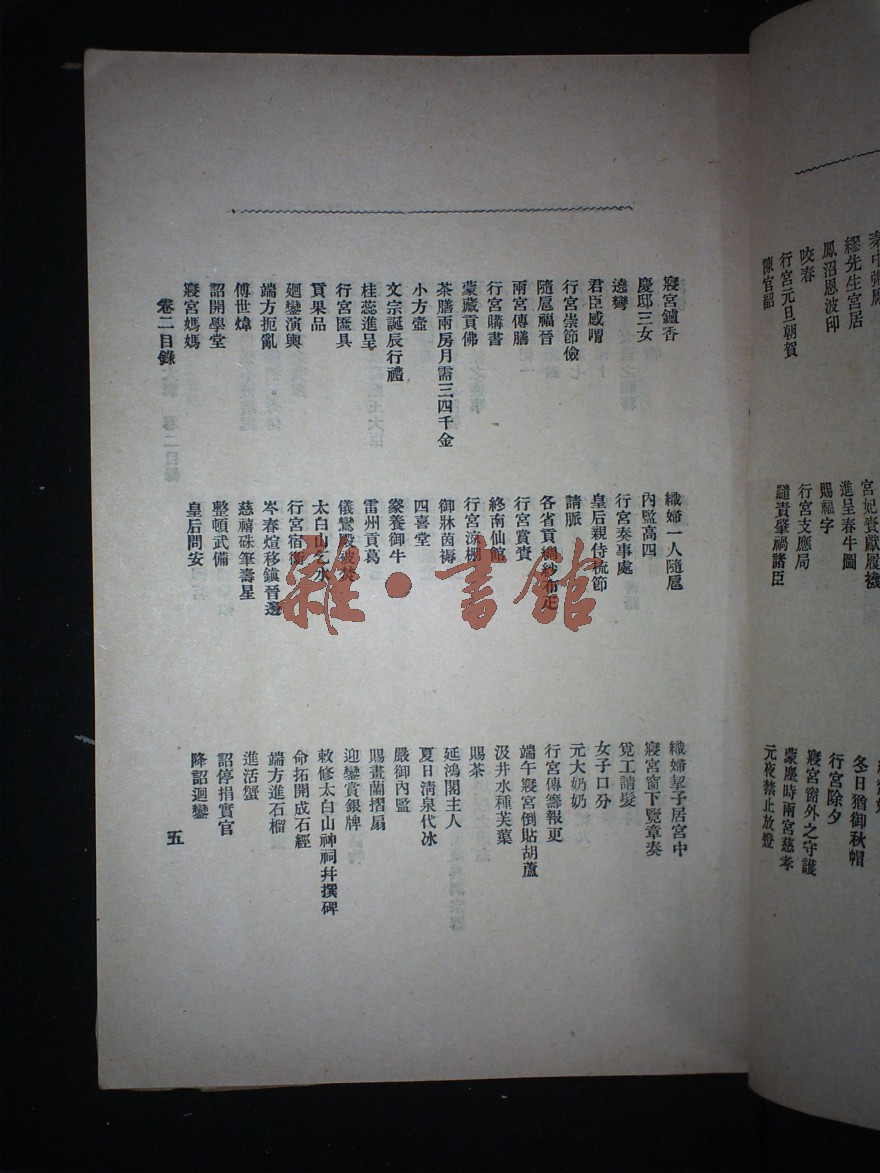 繆先生宮居
宮妃賚獻履襪
冬日猶御秋帽
鳳沼恩波印
進呈春牛圖
行宮除夕
咬春
賜福字
寢宮窗外之守護
行宮元旦朝賀
行宮支應局
蒙塵時兩宮慈孝
陳官詔
譴責肇禍諸臣
元夜禁止放燈
寢宮鑪香
織婦一人隨扈
織婦挈子居宮中
慶邸三女
內監高四
寢宮窗下覽章奏
遶彎
行宮奏事處
覓工請髮
君臣感喟
皇后親侍梳節
女子口分
行宮崇節儉
請脈
元大奶奶
隨扈福晉
各省貢綢紗布疋
行宮傳籌報更
兩宮傳膳
行宮賞賚
端午寢宮倒貼胡蘆
行宮購書
終南仙館
汲井水種芙蕖
蒙藏貢佛
行宮涼棚
賜茶
茶膳兩房月需三四千金
御牀茵褥
延鴻閣主人
小方壺
四喜堂
夏日清泉代冰
文宗誕辰行禮
豢養御牛
嚴御內監
桂蕊進呈
雷州貢葛
賜畫蘭摺扇
行宮匯具
儀鸞殿被焚
迎鑾賞銀牌
貢果品
太白山乞水
敕修太白山神祠幷撰碑
迴鑾演輿
行宮宿衛
命拓開成石經
端方扼亂
岑春煊移鎮晉邊
端方進石榴
傅世煒
慈禧硃筆壽星
進活蟹
詔開學堂
整頓武備
詔停捐實官
寢宮媽媽
皇后問安
降詔迴鑾
卷二目錄
五
雜·書館